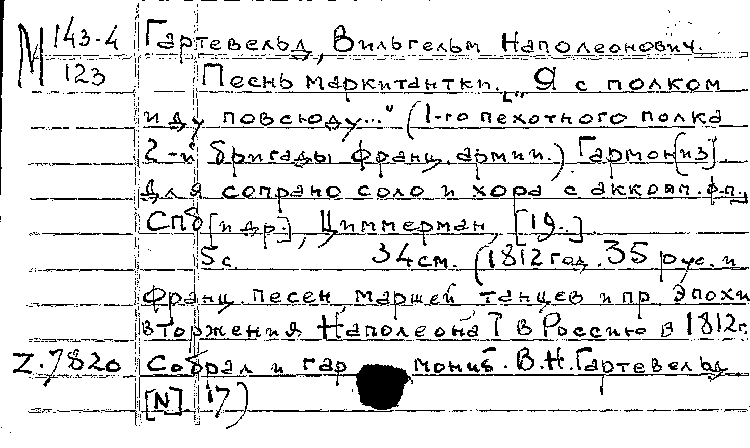 М 143-4 Гартевельд, Вильгельм Наполеонович.
123 Песнь маркитантки. „Я с полком
иду повсюду..." (1-го пехотного полка
2-й бригады франц. армии.) Гармон[из].
для сопрано соло и хора с аккомп. ф.п.,
СПб [и др.], Циммерман, [19..].
5с. 34см. (1812 год. 35 рус. и
франц. песен, маршей, танцев и пр. эпохи
вторжения Наполеона I в Россию в 1812г.
Z.7820 Собрал и гар мониз. В.Н.Гартевельд
[N] 17)